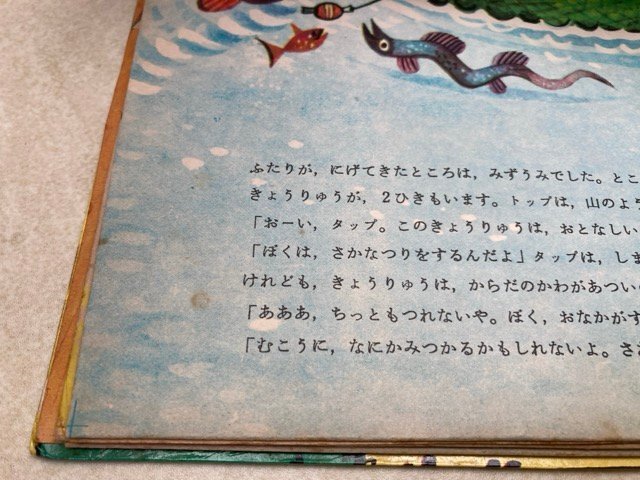 ふたりが，にげてきたところは，みずうみでした。とこ
きょうりゅうが，２ひきもいます。トップは，山のよう
「おーい，タップ。このきょうりゅうは，おとなしい
「ぼくは，さかなつりをするんだよ」タップは，しま
けれども，きょうりゅうは，からだのかわがあつい
「あああ，ちっともつれないや。ぼく，おなかがす
「むこうに，なにかみつかるかもしれないよ。さあ